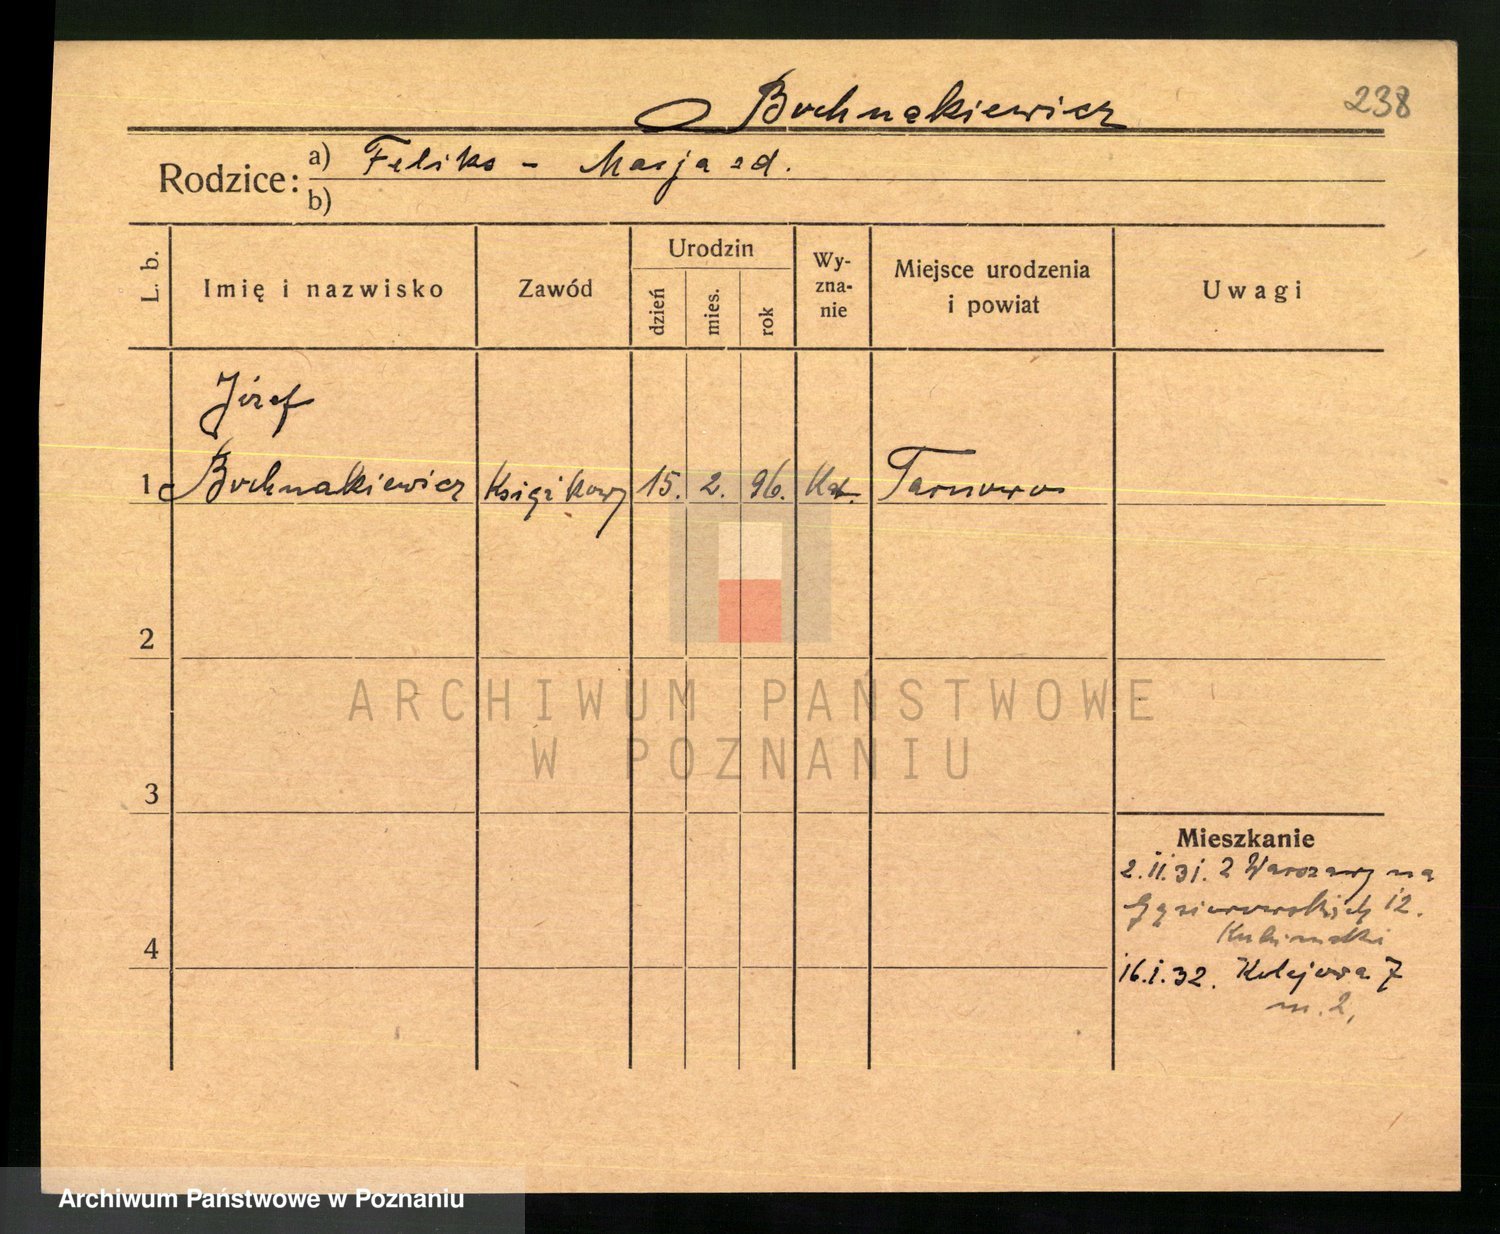 Bochnakiewicz
238
Rodzice: a) Feliks - Marja zd.
b)
L. b.
Imię i nazwisko
Zawód
Urodzin
dzień
mies.
rok
Wy-
zna-
nie
Miejsce urodzenia
i powiat
Uwagi
Józef
1 Bochnakiewicz Książkowy 15. 2. 96. Kat. Tarnowo
2
ARCHIWUM PAŃSTWOWE
W POZNANIU
3
Mieszkanie
2.II.31. z Warszawy na
Gąsiorowskich 12.
4
16.I.32. Kolejowa 7
m. 2,
Archiwum Państwowe w Poznaniu